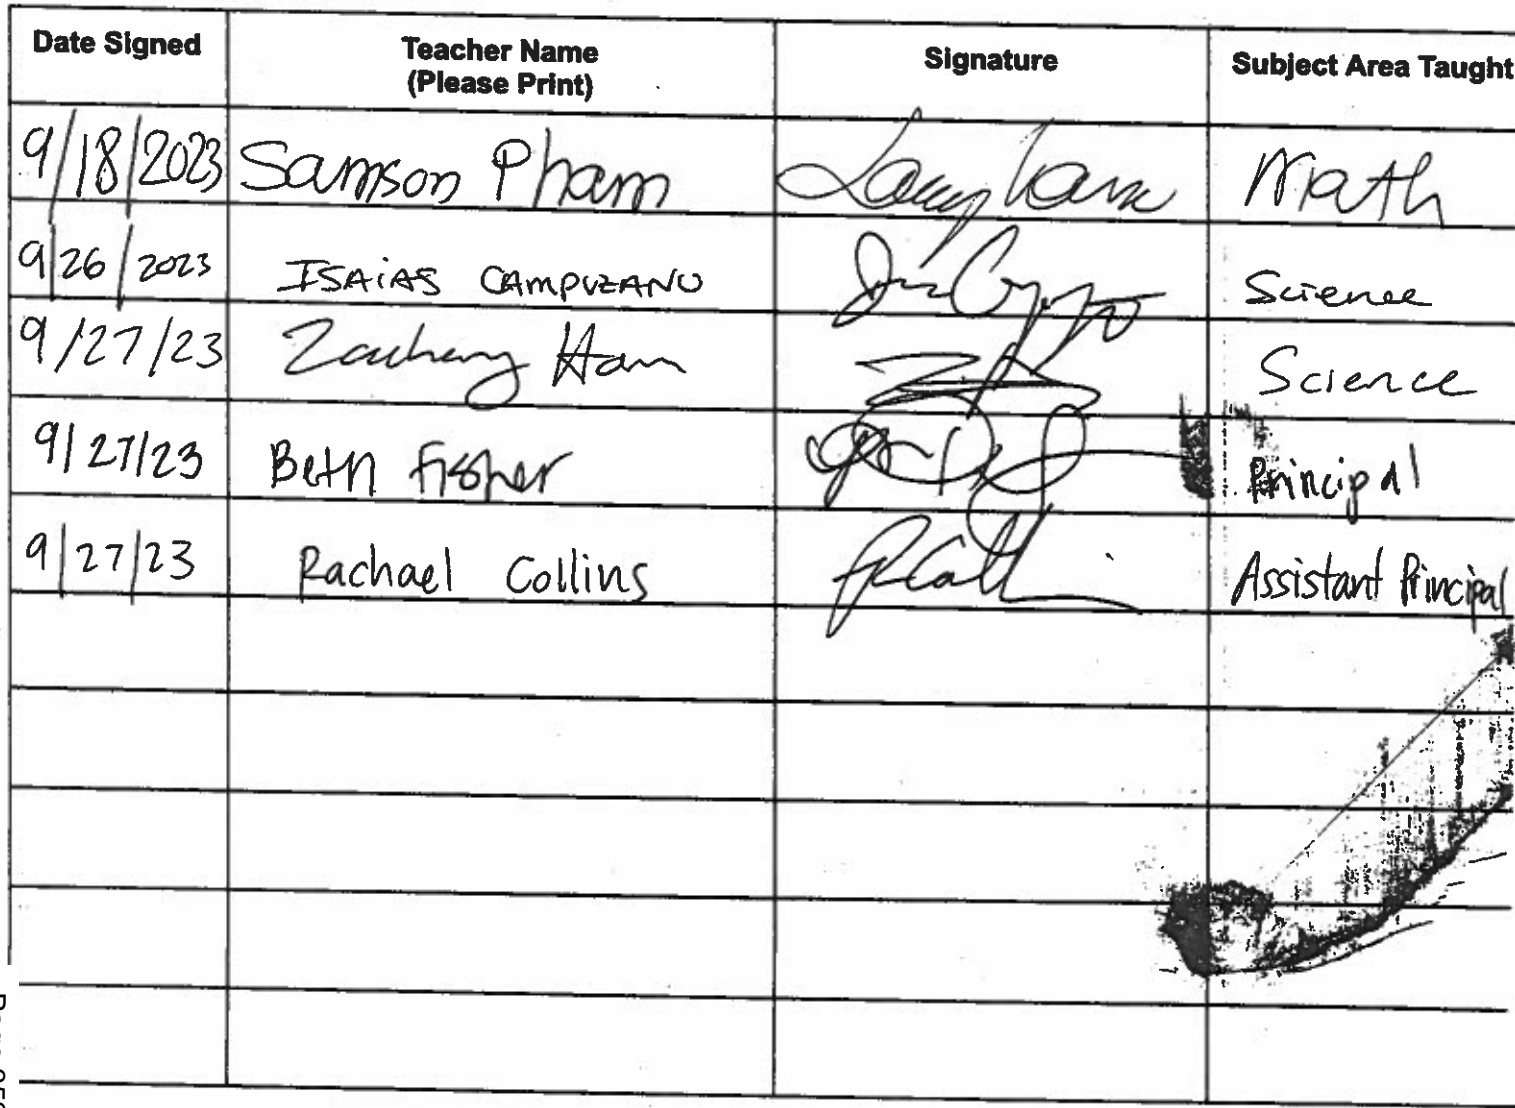 Date Signed Teacher Name Signature Subject Area Taught
(Please Print)
9/18/2023 Samson Pham Math
9/26/2023 ISAiAS CAMPUZANO Science
9/27/23 Zachary Ham Science
9/27/23 Beth Fisher Principal
9/27/23 Rachael Collins Assistant Principal
Page